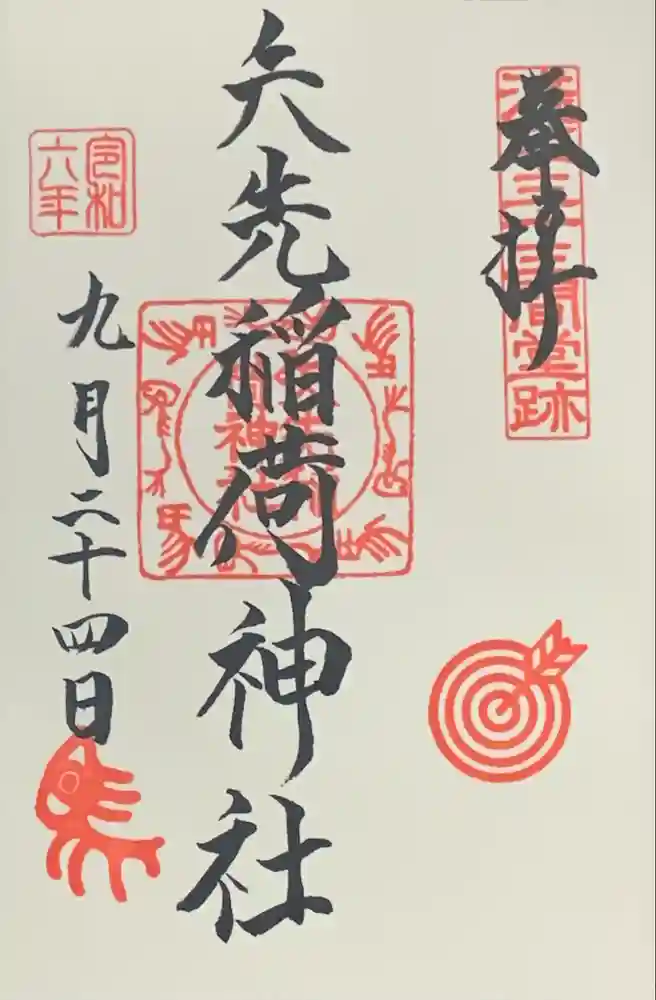 奉拝
浅草三十三間堂跡
矢先稲荷神社
令和
六年
九月二十四日